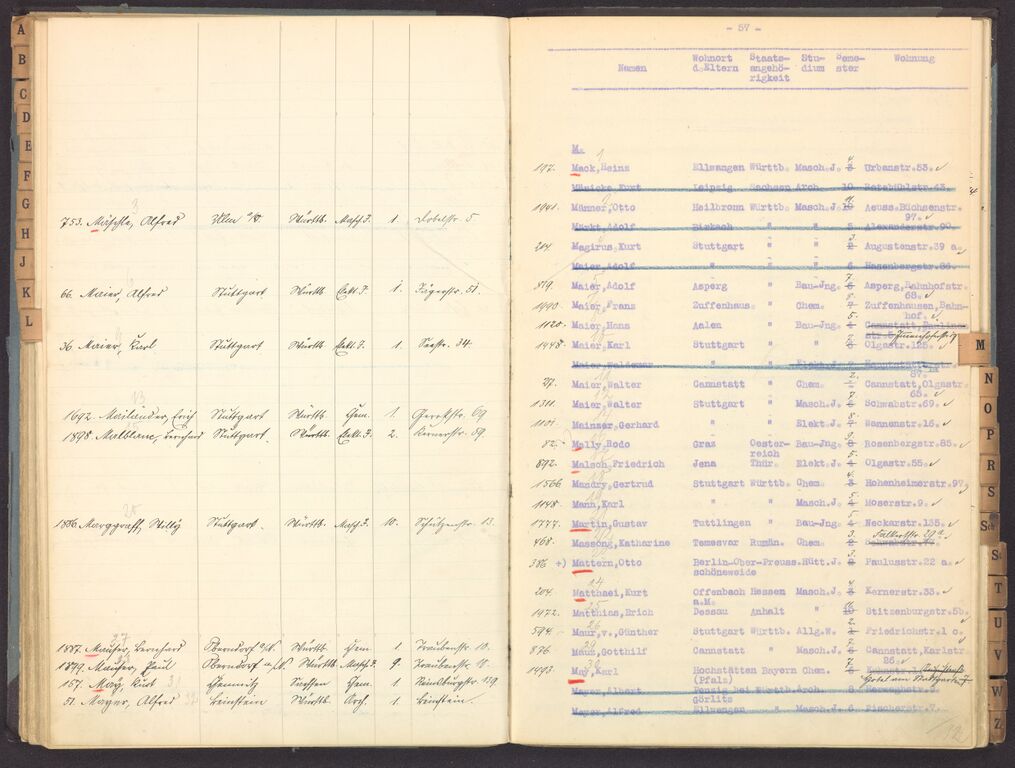 A
B
C
D
E
F
G
H
J
K
L
753. Mäschle, Alfred Ulm a/D. Württb. Masch.I. 1. Dobelstr. 5
66. Maier, Alfred Stuttgart Württb. Elekt.I. 1. Jägerstr. 51.
36 Maier, Karl Stuttgart Württb. Elekt.I. 1. Seestr. 34.
1692. Mailänder, Erich Stuttgart Württb. Chem. 1. Gerokstr. 69
1898. Malblanc, Bernhard Stuttgart. Württb. Elekt.I. 2. Kernerstr. 59.
1886. Marggraff, Willy Stuttgart. Württb. Masch.I. 10. Schützenstr. 13.
1887. Mauser, Bernhard Oberndorf a/N. Württb. Chem 1 Traubenstr. 10.
1879. Mauser, Paul Oberndorf a/N. Württb. Masch.I. 9. Traubenstr. 10.
157. May, Kurt Chemnitz Sachsen Chem. 1. Reinsburgstr. 139
51. Mayer, Alfred Beinstein Württb. Arch. 1. Beinstein.
- 57 -
Namen Wohnort d.Eltern Staatsangehörigkeit Studium Semester Wohnung
M.
197. Mack,Heinz Ellwangen Württb. Masch.J. 4 Urbanstr.53.
Mänicke,Kurt Leipzig Sachsen Arch. 10 Rotebühlstr.43.
1941. Männer,Otto Heilbronn Württb. Masch.J. 10 Aeuss.Büchsenstr.
97.
Märkt,Adolf Birkach " " 3 Alexanderstr.90.
214 Magirus,Kurt Stuttgart " " Augustenstr.39 a.
Maier,Adolf " " 6 Hasenbergstr.86.
819. Maier,Adolf Asperg " Bau-Jng. 7. Asperg,Bahnhofstr.
68.
1490. Maier,Franz Zuffenhaus. " Chem. Zuffenhausen,Bahn-
hof.
1120. Maier,Hans Aalen " Bau-Jng. 5.
1448. Maier,Karl Stuttgart " " Olgastr.125.
Maier,Waldemar " " Elekt.J.
87.
27. Maier,Walter Cannstatt " Chem 2. Cannstatt,Olgastr.
65.
1311. Maier,Walter Stuttgart " Masch.J. Schwabstr.69.
1101. Mainzer,Gerhard " " Elekt.J. Wannenstr.16.
82. Mally,Rodo Graz Oester- Bau-Jng. Rosenbergstr.85.
reich
892. Malsch,Friedrich Jena Thür. Elekt.J. 5. Olgastr.55.
1566 Mandry,Gertrud Stuttgart Württb. Chem. Hohenheimerstr.97.
1148. Mann,Karl " " Masch.J. 5. Moserstr.9.
1777. Martin,Gustav Tuttlingen " Bau-Jng. Neckarstr.135.
468. Massong,Katharine Temesvar Rumän. Chem. 3. Falkertstr. 29a
386 +) Mattern,Otto Berlin-Ober- Preuss. Hütt.J. 3. Paulusstr.22 a.
schöneweide
204. Matthaei,Kurt Offenbach Hessen Masch.J. Kernerstr.33.
a.M.
1972. Matthias,Erich Dessau Anhalt " Stitzenburgstr.5b.
594. Maur,v.,Günther Stuttgart Württb. Allg.W. Friedrichstr.1 c.
876 Mauz,Gotthilf Cannstatt " Masch.J. Cannstatt,Karlstr.
26.
1493. May,Karl Hochstätten Bayern Chem. 7.
(Pfalz)
Mayer,Albert Penzig bei Württb. Arch. 8 Herweghstr.5.
Görlitz
Mayer,Alfred Ellwangen " Masch.J. 6 Fischerstr.7.
M
N
O
P
R
S
Sch
St
T
U
V
W
Z